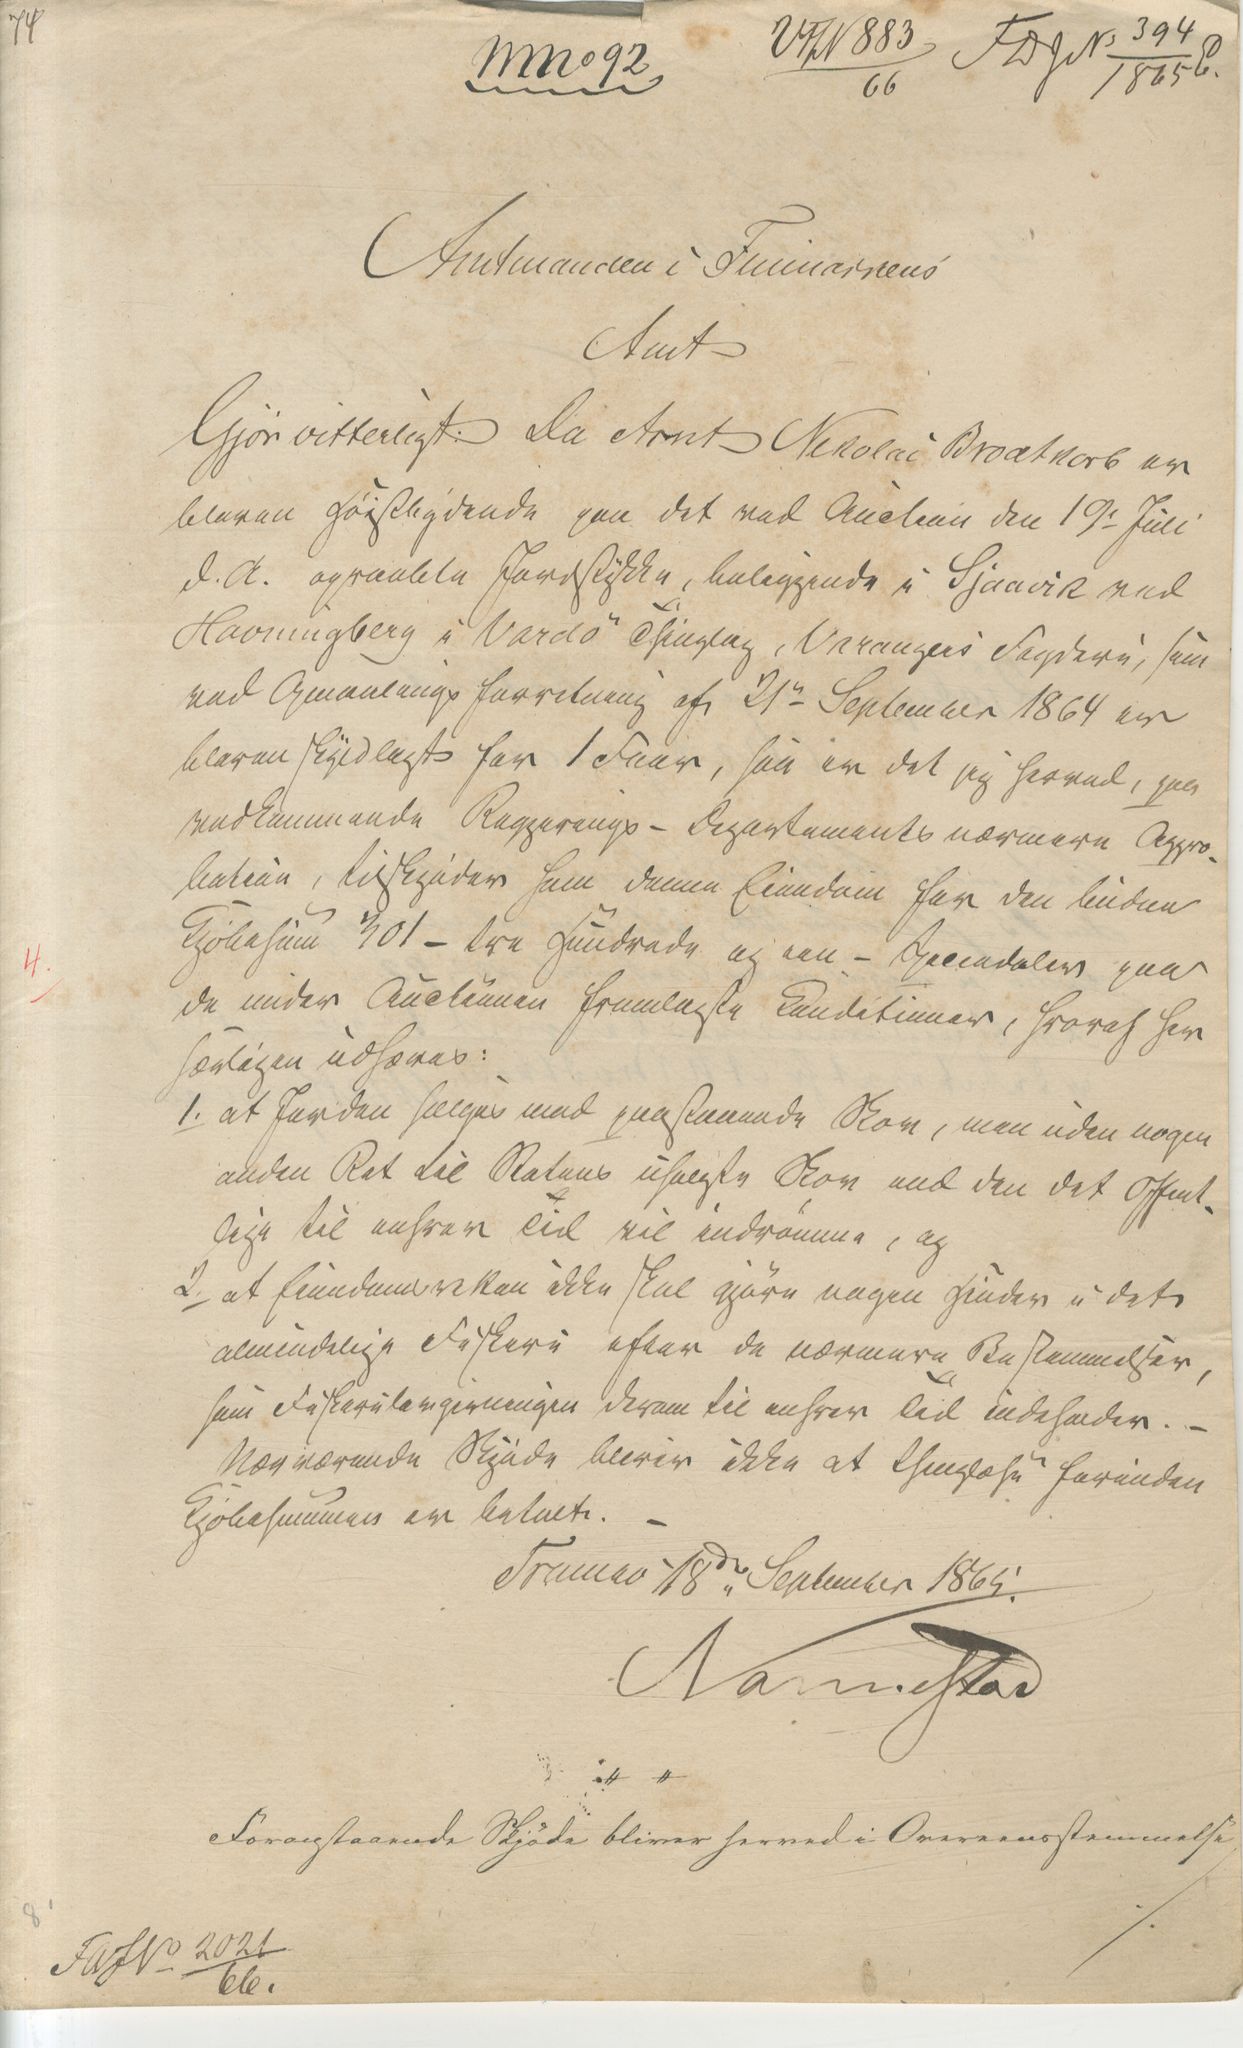 74
MNo 92
VFJN 883/66
FDJN 394/1865 E.
Amtmanden i Finmarkens
Amt
Gjør vitterligt: Da Arnt Nekolai Brodtkorb er
bleven høistbydende paa det ved Auction den 19de Juli
d. A. opraabte Jordstykke, beliggende i Sjaavik ved
Havningberg i Vardö Thinglag, Varangers Fogderi, som
ved Opmaalingsforretning af 21de September 1864 er
bleven skyldlagt for 1 Skill, saa er det jeg herved, paa
vedkommende Regjerings-Departements nærmere Appro-
bation, tilskjøder ham denne Eiendom for den budne
Kjøbesum 301 – tre hundrede og een – Speciedaler paa
de under Auctionen fremlagte Conditioner, hvoraf her
særligen udhæves:
1. at Jorden sælges med paastaaende Skov, men uden nogen
anden Ret til Statens usolgte Skov end den det Offent-
lige til enhver Tid vil indrömme, og
2. at Eiendomsretten ikke skal gjöre nogen Hinder i det
almindelige Fiskeri efter de nærmere Bestemmelser,
som Fiskerilovgivningen derom til enhver Tid indeholder. –
Nærværende Skjöde bliver ikke at thinglæse forinden
Kjøbesummen er betalt. –
Tromsø 18de September 1865.
Nannestad
Foranstaaende Skjöde bliver herved i Overeensstemmelse
./.
FAJNo 2021/66.
4.
8